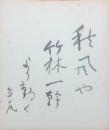 秋風や
竹林一幹
より動く
年尾